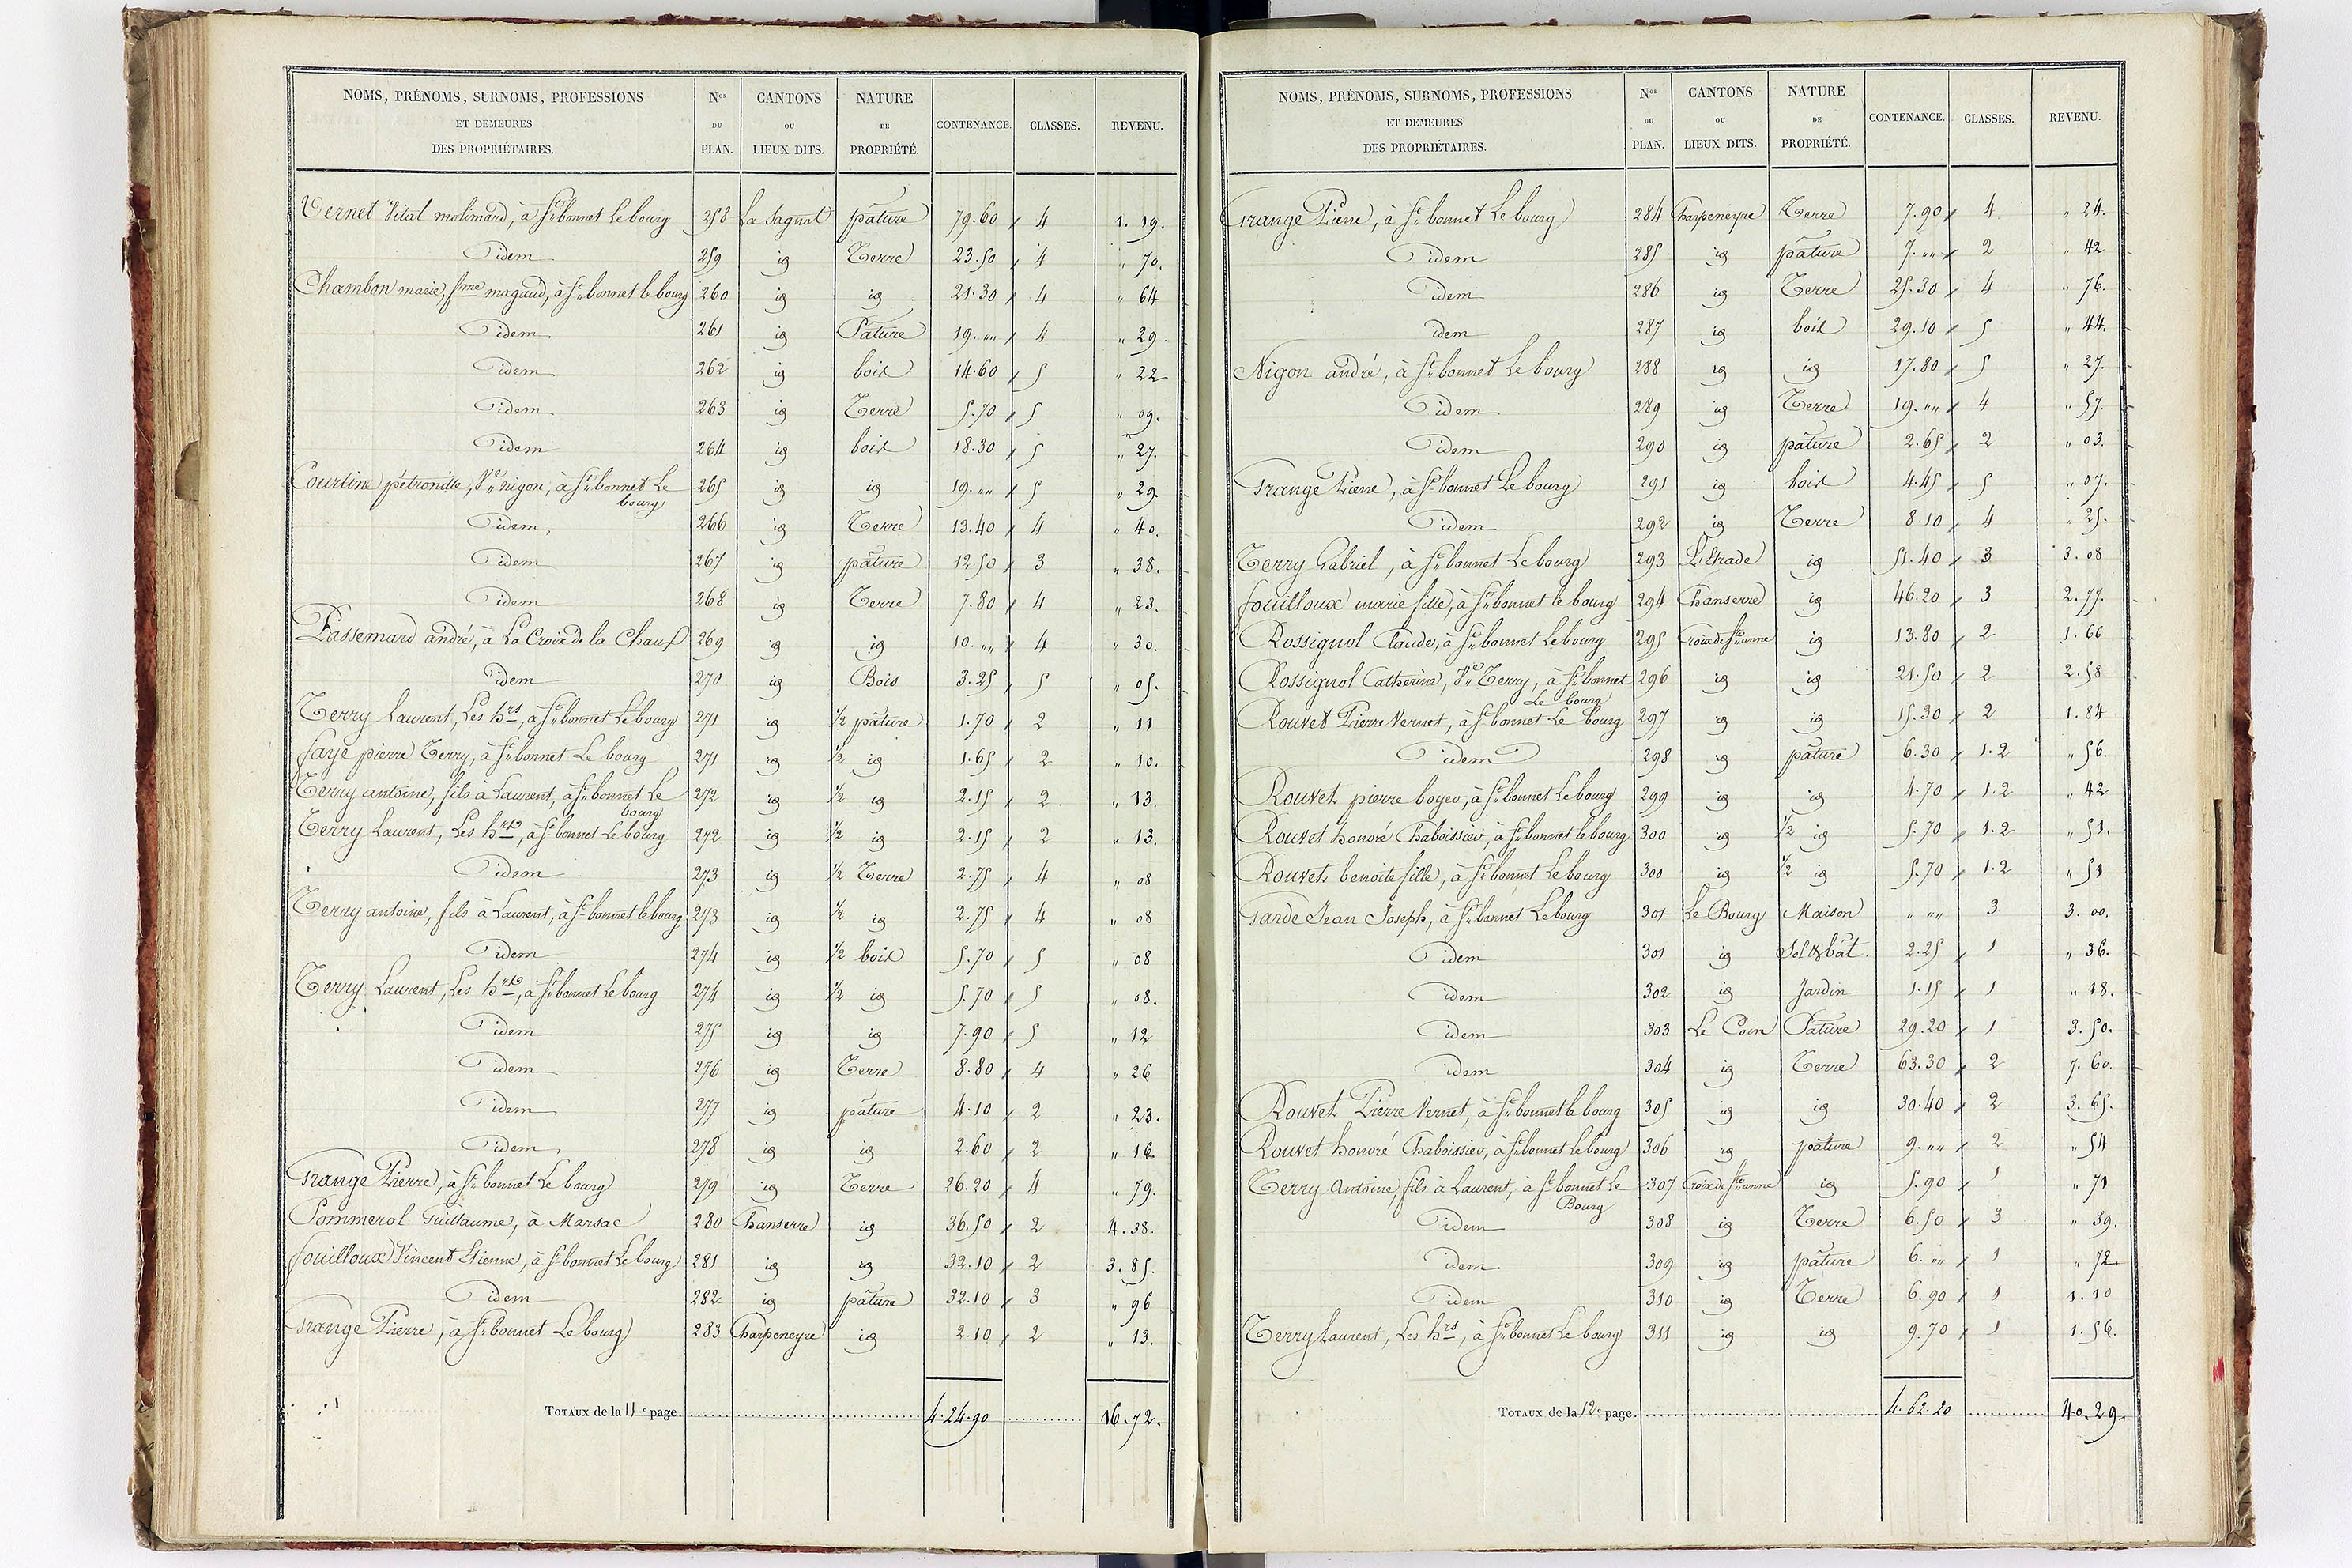 NOMS, PRÉNOMS, SURNOMS, PROFESSIONS ET DEMEURES DES PROPRIÉTAIRES. Nos DU PLAN. CANTONS OU LIEUX DITS. NATURE DE PROPRIÉTÉ. CONTENANCE. CLASSES. REVENU.
Vernet Vital molimard, à St bonnet Le bourg 258 La Sagnat pâture 79.60 4 1.19.
idem 259 id Terre 23.50 4 " 70.
Chambon marie, fme magaud, à St bonnet le bourg 260 id id 21.30 4 " 64
idem 261 id Pature 19. "" 4 " 29.
idem 262 id bois 14.60 5 " 22
idem 263 id Terre 5.70 5 " 09.
idem 264 id bois 18.30 5 " 27.
Courtine pétronille, Ve nigon, à St bonnet Le bourg 265 id id 19. "" 5 " 29.
idem 266 id Terre 13.40 4 " 40.
idem 267 id pâture 12.50 3 " 38.
idem 268 id Terre 7.80 4 " 23.
Passemard andré, à La Croix de la Chauf 269 id id 10. "" 4 " 30.
idem 270 id Bois 3.25 5 " 05.
Terry Laurent, Les hrs, à St bonnet Le bourg 271 id 1/2 pâture 1.70 2 " 11
faye pierre Terry, à St bonnet Le bourg 271 id 1/2 id 1.65 2 " 10.
Terry antoine, fils à Laurent, à St bonnet Le bourg 272 id 1/2 id 2.15 2 " 13.
Terry Laurent, Les hrs, à St bonnet Le bourg 272 id 1/2 id 2.15 2 " 13.
idem 273 id 1/2 Terre 2.75 4 " 08
Terry antoine, fils à Laurent, à St bonnet le bourg 273 id 1/2 id 2.75 4 " 08
idem 274 id 1/2 bois 5.70 5 " 08
Terry Laurent, Les hrs, à St bonnet Le bourg 274 id 1/2 id 5.70 5 " 08.
idem 275 id id 7.90 5 " 12
idem 276 id Terre 8.80 4 " 26
idem 277 id pâture 4.10 2 " 23.
idem 278 id id 2.60 2 " 16
Grange Pierre, à St bonnet Le bourg 279 id Terre 26.20 4 " 79.
Pommerol Guillaume, à Marsac 280 Chanserre id 36.50 2 4.38.
fouilloux Vincent Etienne, à St bonnet Le bourg 281 id id 32.10 2 3.85.
idem 282 id pâture 32.10 3 " 96
Grange Pierre, à St bonnet Le bourg 283 Charpeneyre id 2.10 2 " 13.
TOTAUX de la 11e page. 4.24.90 16.72.
NOMS, PRÉNOMS, SURNOMS, PROFESSIONS ET DEMEURES DES PROPRIÉTAIRES. Nos DU PLAN. CANTONS OU LIEUX DITS. NATURE DE PROPRIÉTÉ. CONTENANCE. CLASSES. REVENU.
Grange Pierre, à St bonnet Le bourg 284 Charpeneyre Terre 7.90 4 " 24.
idem 285 id pâture 7. "" 2 " 42
idem 286 id Terre 25.30 4 " 76.
idem 287 id bois 29.10 5 " 44.
Nigon andré, à St bonnet Le bourg 288 id id 17.80 5 " 27.
idem 289 id Terre 19. "" 4 " 57.
idem 290 id pâture 2.65 2 " 03.
Grange Pierre, à St bonnet Le bourg 291 id bois 4.45 5 " 07.
idem 292 id Terre 8.10 4 " 25.
Terry Gabriel, à St bonnet Le bourg 293 L'Etrade id 51.40 3 3.08
fouilloux marie fille, à St bonnet le bourg 294 Chanserre id 46.20 3 2.77.
Rossignol Claude, à St bonnet Le bourg 295 Croix de Ste anne id 13.80 2 1.66
Rossignol Catherine, Ve Terry, à St bonnet Le bourg 296 id id 21.50 2 2.58
Rouvet Pierre Vernet, à St bonnet Le bourg 297 id id 15.30 2 1.84
idem 298 id pâture 6.30 1.2 " 56.
Rouvet pierre boyer, à St bonnet Le bourg 299 id id 4.70 1.2 " 42
Rouvet honoré Chaboissier, à St bonnet le bourg 300 id 1/2 id 5.70 1.2 " 51.
Rouvet benoite fille, à St bonnet Le bourg 300 id 1/2 id 5.70 1.2 " 51
Garde Jean Joseph, à St bonnet Le bourg 301 Le Bourg Maison " "" 3 3.00.
idem 301 id Sol & bât. 2.25 1 " 36.
idem 302 id Jardin 1.15 1 " 18.
idem 303 Le Coin Pature 29.20 1 3.50.
idem 304 id Terre 63.30 2 7.60.
Rouvet Pierre Vernet, à St bonnet le bourg 305 id id 30.40 2 3.65.
Rouvet honoré Chaboissier, à St bonnet Le bourg 306 id pâture 9. "" 2 " 54
Terry Antoine, fils à Laurent, à St bonnet Le Bourg 307 Croix de Ste anne id 5.90 1 " 71
idem 308 id Terre 6.50 3 " 39.
idem 309 id pâture 6. "" 1 " 72.
idem 310 id Terre 6.90 1 1.10
Terry Laurent, Les hrs, à St bonnet Le bourg 311 id id 9.70 1 1.56.
TOTAUX de la 12e page. 4.62.20 40.29.